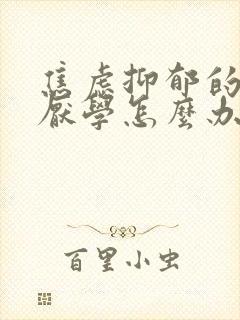 焦虑抑郁的
厭學怎麼办
百里小虫